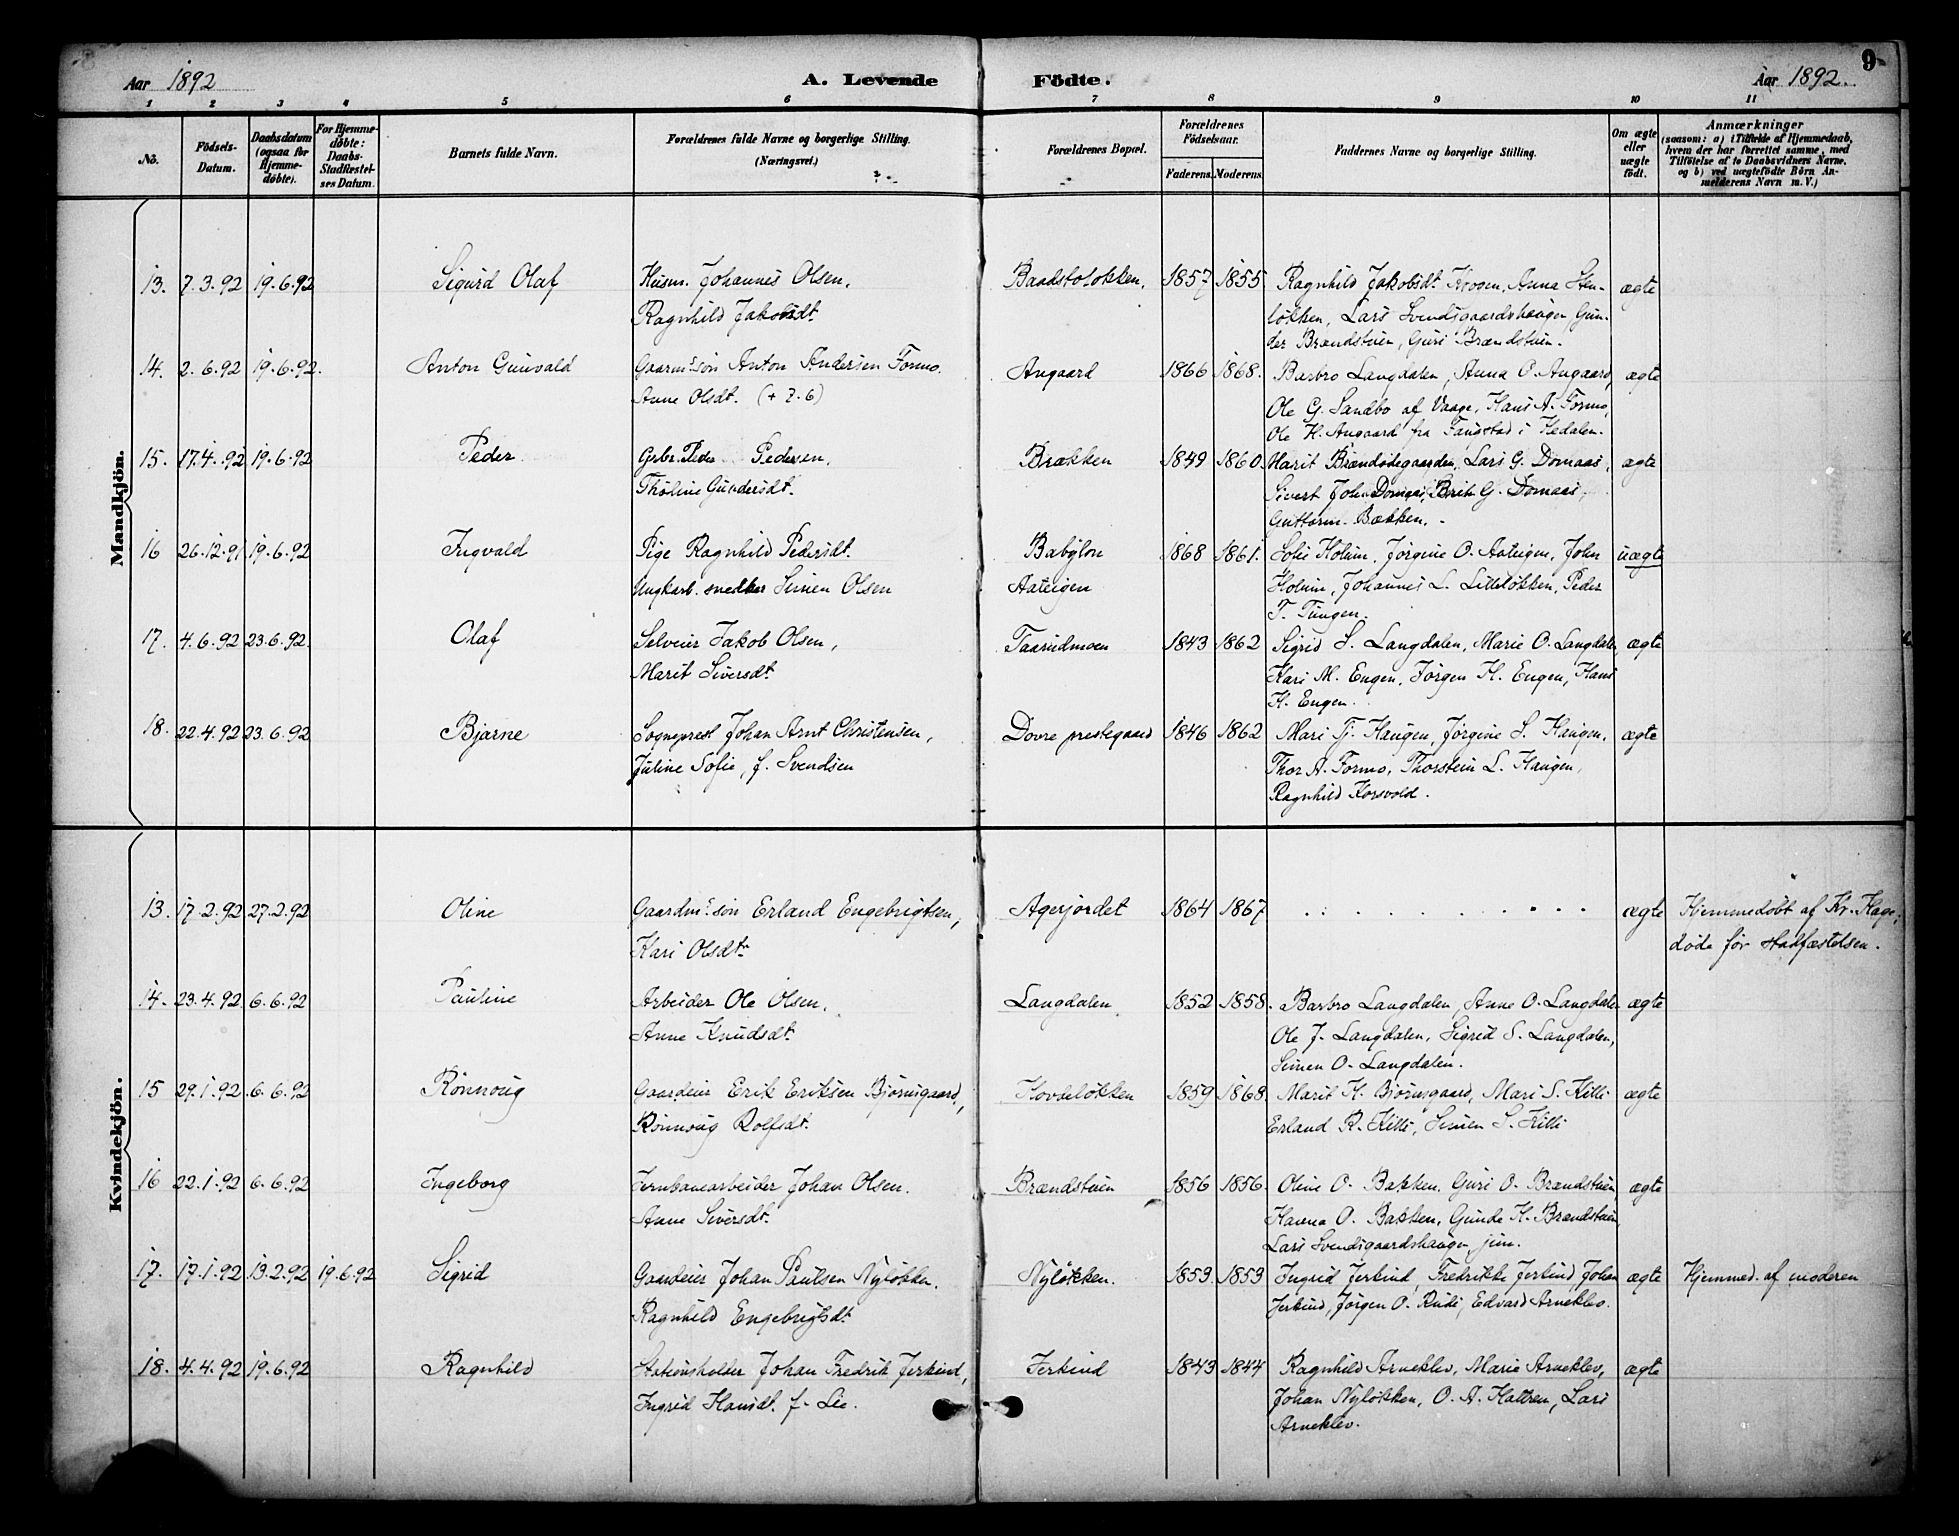 Aar 1892
A. Levende Födte.
Aar 1892.
9
1 2 3 4 5 6 7 8 9 10 11
No.
Födsels-
Datum.
Daabsdatum
(ogsaa for
Hjemme-
döbte).
For Hjemme-
döbte:
Daabs-
Stadfæstel-
ses Datum.
Barnets fulde Navn.
Forældrenes fulde Navne og borgerlige Stilling.
(Næringsvei.)
Forældrenes Bopæl.
Forældrenes
Födselsaar.
Faderens. Moderens.
Faddernes Navne og borgerlige Stilling.
Om ægte
eller
uægte
födt.
Anmærkninger
(saasom: a) i Tilfælde af Hjemmedaab,
hvem der har forrettet samme, med
Tilföielse af to Daabsvidners Navne,
og b) ved uægtefödte Börn An-
melderens Navn m. V.)
Mandkjön.
13. 7.3.92 19.6.92 Sigurd Olaf Husm. Johannes Olsen, Baadstoløkken, 1857 1855 Ragnhild Jakobsdt. Krogen, Anna Sten- ægte
Ragnhild Jakobsdt. løkken, Lars Svendsgaardshaugen, Gun-
der Brændstuen, Guri Brændstuen.
14. 2.6.92 19.6.92. Anton Gunvald Gaarm.s søn Anton Andersen Formo. Angaard 1866 1868. Barbro Langdalen, Anna O. Angaard, ægte
Anne Olsdt. (+ 7.6) Ole G. Sandbo af Vaage, Hans A. Formo,
Ole H. Angaard fra Faugstad i Hedalen.
15. 17.4.92 19.6.92 Peder Gbr. Peder Pedersen, Brækken 1849 1860. Marit Brændødegaarden, Lars G. Domaas, ægte
Tholine Gundersdt. Sivert Joh. Domaas, Brit G. Domaas,
Guttorm Bækken.
16 26.12.91 19.6.92 Ingvald Pige Ragnhild Pedersdt. Babylon 1868 1861. Sofie Holum, Jørgine O. Aateigen, John uægte
Ungkarl. snedker Simen Olsen Aateigen Holum, Johannes L. Lilleløkken, Peder
T. Tungen.
17. 4.6.92 23.6.92. Olaf Selveier Jakob Olsen, Taarudmoen 1843 1862 Sigrid S. Langdalen, Marie O. Langdalen, ægte
Marit Siversdt. Kari M. Engen, Jørgen H. Engen, Hans
H. Engen.
18. 22.4.92 23.6.92 Bjarne Sogneprest Johan Arnt Christensen, Dovre prestegaard 1846 1862 Mari Tj. Haugen, Jørgine S. Haugen, ægte
Juline Sofie, f. Svendsen Thor A. Formo, Thorstein L. Haugen,
Ragnhild Korsvold.
Kvindekjön.
13. 17.2.92 27.2.92 Oline Gaardm.s søn Erland Engebrigtsen, Agerjordet 1864 1867 ægte Hjemmedøbt af Kr. Hage,
Kari Olsdt. døde før stadfæstelsen.
14. 23.4.92 6.6.92 Pauline Arbeider Ole Olsen, Langdalen 1852 1858. Barbro Langdalen, Anne O. Langdalen ægte
Anne Knudsdt. Ole J. Langdalen, Sigrid S. Langdalen,
Simen O. Langdalen.
15 29.1.92 6.6.92 Rønnoug Gaardeier Erik Eriksen Bjørnsgaard, Hovdeløkken 1859 1868. Marit H. Bjørnsgaard, Mari S. Killi ægte
Rønnoug Rolfsdt. Erland R. Killi, Simen S. Killi
16 22.1.92 6.6.92 Ingeborg Jernbanearbeider Johan Olsen. Brændstuen 1856 1856. Oline O. Bakken, Guri O. Brændstuen ægte
Anne Siversdt. Hanna O. Bakken, Gunde H. Brændstuen,
Lars Svendsgaardshaugen jun.
17. 17.1.92 13.2.92 19.6.92 Sigrid Gaardeier Johan Paulsen Nyløkken. Nyløkken. 1853. 1853 Ingrid Jerkind, Fredrikke Jerkind, Johan ægte Hjemmed. af moderen
Ragnhild Engebrigtsdt. Jerkind, Jørgen O. Rudi, Edvard Arneklev.
18. 4.4.92 19.6.92 Ragnhild Stationsholder Johan Fredrik Jerkind, Jerkind 1843 1844 Ragnhild Arneklev, Marie Arneklev, ægte
Ingrid Hansdt. f. Lie. Johan Nyløkken, O. A. Hattren, Lars
Arneklev.